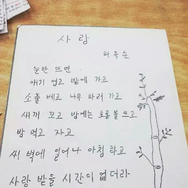 사랑
허옥순
눈만 뜨면
애기 업고 밭에 가고
소풀 베고 나무 하러 가고
새끼 꼬고 밤에는 호롱불 쓰고
밤 먹고 자고
새벽에 일어나 아침 하고
사랑 받을 시간이 없더라